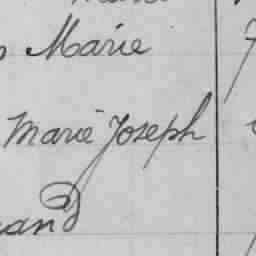 Marie
Marie Joseph